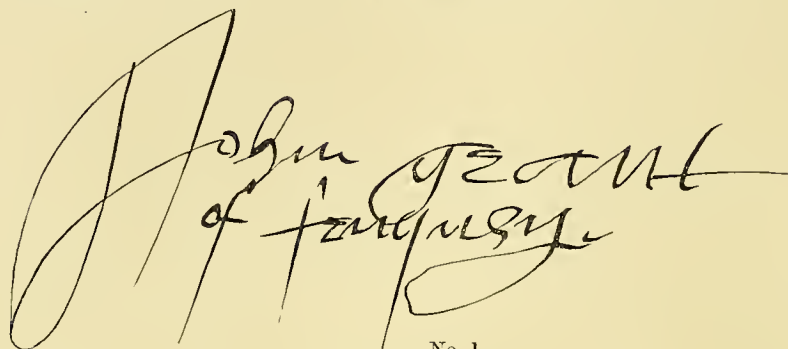 John grant
of freuquhy.
No 1